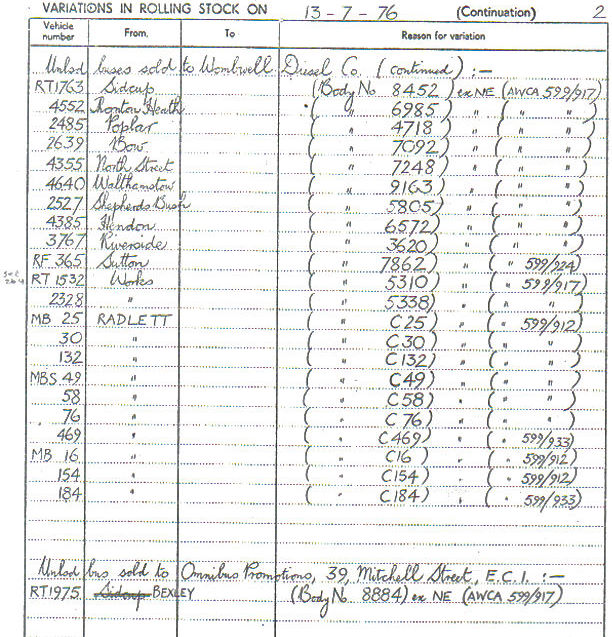 VARIATIONS IN ROLLING STOCK ON 13-7-76 (Continuation) 2
Vehicle number From. To Reason for variation
Unlsd buses sold to Wombwell Diesel Co. (continued) :-
RT1763 Sidcup (Body No 8452) ex NE (AWCA 599/917)
4552 Thornton Heath ( " 6985 ) " ( " " )
2485 Poplar ( " 4718 ) " ( " " )
2639 Bow ( " 7092 ) " ( " " )
4355 North Street ( " 7248 ) " ( " " )
4640 Walthamstow ( " 9163 ) " ( " " )
2527 Shepherds Bush ( " 5805 ) " ( " " )
4385 Hendon ( " 6572 ) " ( " " )
3767 Riverside ( " 3620 ) " ( " " )
RF 365 Sutton ( " 7862 ) " ( " 599/924)
RT 1532 Works ( " 5310 ) " ( " 599/917)
2328 " ( " 5338 ) " ( " " )
MB 25 RADLETT ( " C25 ) " ( " 599/912)
30 " ( " C30 ) " ( " " )
132 " ( " C132 ) " ( " " )
MBS 49 " ( " C49 ) " ( " " )
58 " ( " C58 ) " ( " " )
76 " ( " C76 ) " ( " " )
469 " ( " C469 ) " ( " 599/933)
MB 16 " ( " C16 ) " ( " 599/912)
154 " ( " C154 ) " ( " 599/912)
184 " ( " C184 ) " ( " 599/933)
Unlsd bus sold to Omnibus Promotions, 39, Mitchell Street, E.C.1. :-
RT1975 Sidcup BEXLEY (Body No. 8884) ex NE (AWCA 599/917)